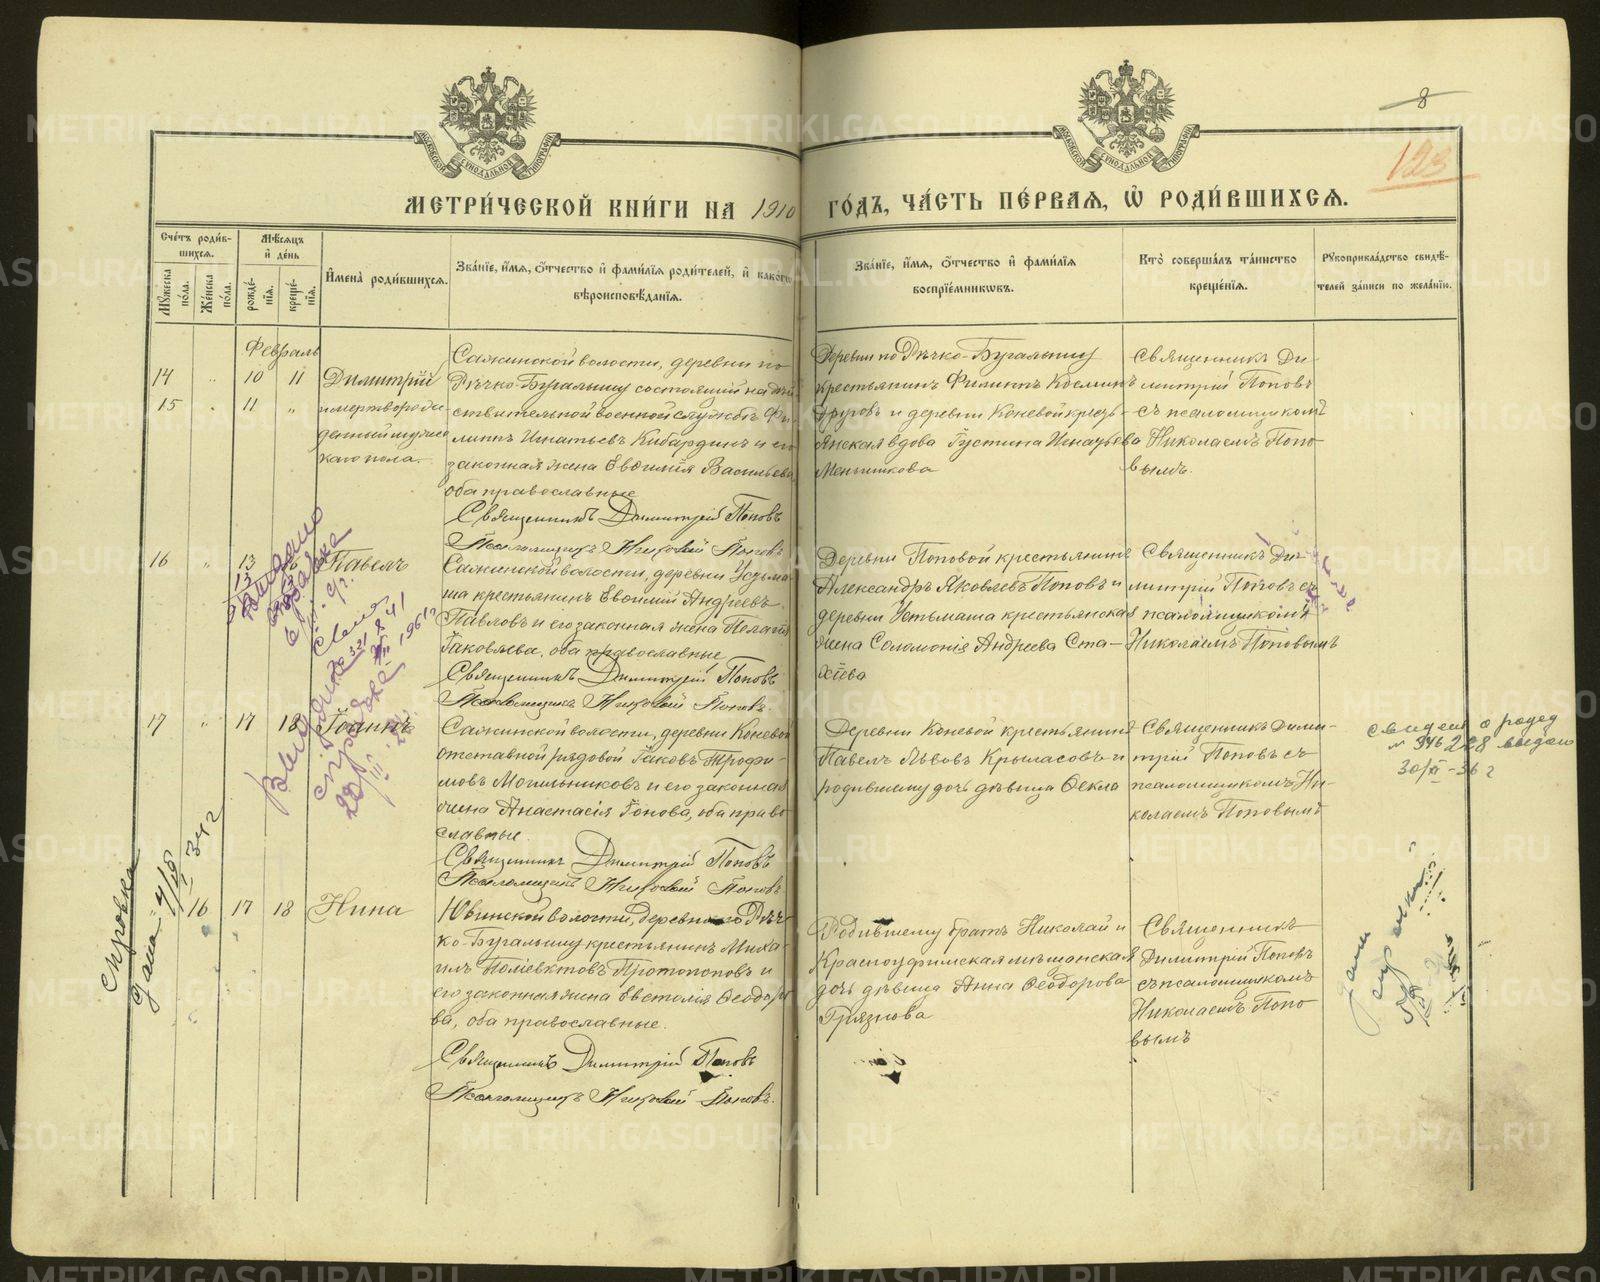 8
123
МОСКОВСКОЙ СѴНОДАЛЬНОЙ ТИПОГРАФІИ
МОСКОВСКОЙ СѴНОДАЛЬНОЙ ТИПОГРАФІИ
МЕТРИ́ЧЕСКОЙ КНИ́ГИ НА 1910 ГО́ДЪ, ЧА́СТЬ ПЕ́РВАѦ, Ѽ РОДИ́ВШИХСѦ.
Сче́тъ роди́в-
шихсѧ.
Мѹ́жеска по́ла.
Же́нска по́ла.
Мѣ́сѧцъ
и҆ де́нь
рожде́-
нїѧ.
креще́-
нїѧ.
И҆мена̀ роди́вшихсѧ.
Зва́нїе, и҆́мѧ, ѻ҆́тчество и҆ фами́лїѧ роди́телей, и҆ како́гѡ
вѣроисповѣ́данїѧ.
Зва́нїе, и҆́мѧ, ѻ҆́тчество и҆ фами́лїѧ
воспрїе́мникѡвъ.
Кто̀ соверша́лъ та́инство
креще́нїѧ.
Рꙋкоприкла́дство свидѣ́-
телей за́писи по жела́нїю.
Февраль
14 " 10 11 Димитрій
15 " 11 "
и мертворож
денный мужес
каго пола.
Сажинской волости, деревни по
Рѣчко-Бугалышу состоящій на дѣй
ствительной военной службѣ Фи-
липпъ Игнатьевъ Кибардинъ и его
законная жена Евѳимія Васильева
оба православные
Священникъ Димитрій Поповъ
Псаломщикъ Николай Поповъ
Деревни по Рѣчко-Бугалышу
крестьянинъ Филиппъ Косминъ
Друговъ и деревни Коневой кресть-
янская вдова Іустина Игнатьева
Меньшикова
Священникъ Ди-
митрій Поповъ
съ псаломщикомъ
Николаемъ Попо-
вымъ.
16 " 13 Павелъ
Сажинской волости, деревни Усть-ма-
ша крестьянинъ Евѳимій Андреевъ
Павловъ и его законная жена Пелагія
Іаковлева, оба православные
Священникъ Димитрій Поповъ
Псаломщикъ Николай Поповъ.
Деревни Поповой крестьянинъ
Александръ Яковлевъ Поповъ и
деревни Устьмаша крестьянская
жена Соломонія Андреева Ста-
хѣева
Священникъ Ди-
митрій Поповъ съ
псаломщикомъ
Николаемъ Поповымъ
17 " 17 18 Іоаннъ
Сажинской волости, деревни Коневой
отставной рядовой Іаковъ Трофи-
мовъ Могильниковъ и его законная
жена Анастасія Іонова, оба право-
славные.
Священникъ Димитрій Поповъ
Псаломщикъ Николай Поповъ
Деревни Коневой крестьянинъ
Павелъ Львовъ Крыласовъ и
родившему дочь дѣвица Ѳекла
Священникъ Дими-
трій Поповъ съ
псаломщикомъ Ни-
колаемъ Поповымъ
свидет о рожд
№ 228 выдано
30/XI-36 г
16 17 18 Нина
Ювинской волости, деревни по Рѣч-
ко-Бугалышу крестьянинъ Миха-
илъ Поліевктовъ Протопоповъ и
его законная жена Евстолія Ѳеодоро
ва, оба православные.
Священникъ Димитрій Поповъ
Псаломщикъ Николай Поповъ.
Родившему братъ Николай и
Красноуфимская мѣщанская
дочь дѣвица Анна Ѳеодорова
Грязнова
Священникъ
Димитрій Поповъ
съ псаломщикомъ
Николаемъ Попо-
вымъ
справка
дана
34 г
Выдана
справка
METRIKI.GASO-URAL.RU